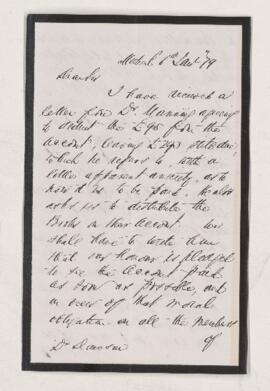 6th Jan 79
Dear Sir
I have received a
letter from Dr. Manning agreeing
to deduct the £95 from the
account, leaving £293
which he refers to, with a
little apparent anxiety, as to
how it is to be paid. He also
asks us to distribute the
Books in their account. We
shall have to write him
that our honour is pledged
to see the account paid
as soon as possible, and
in view of that moral
obligation on all the members
of
Dr